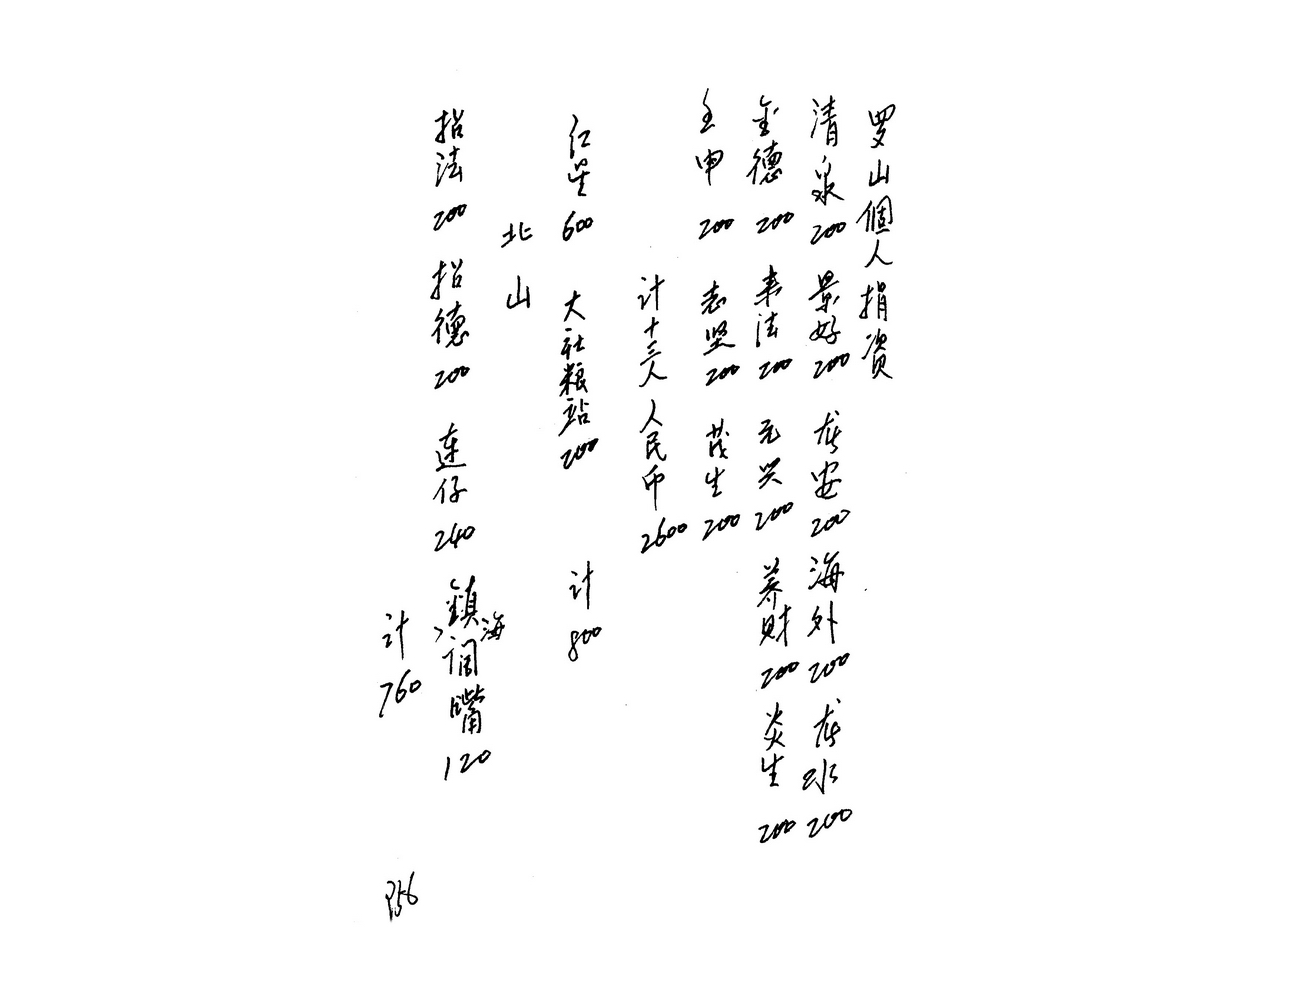 罗山個人捐资
清泉200 景好200 龙安200 海外200 龙水200
金德200 来法200 元兴200 养财200 炎生200
壬申200 志坚200 茂生200
计十三人人民币2600
红星600 大社粮站200 计800
北山
招法200 招德200 连仔240 镇海阔嘴120
计760
P56